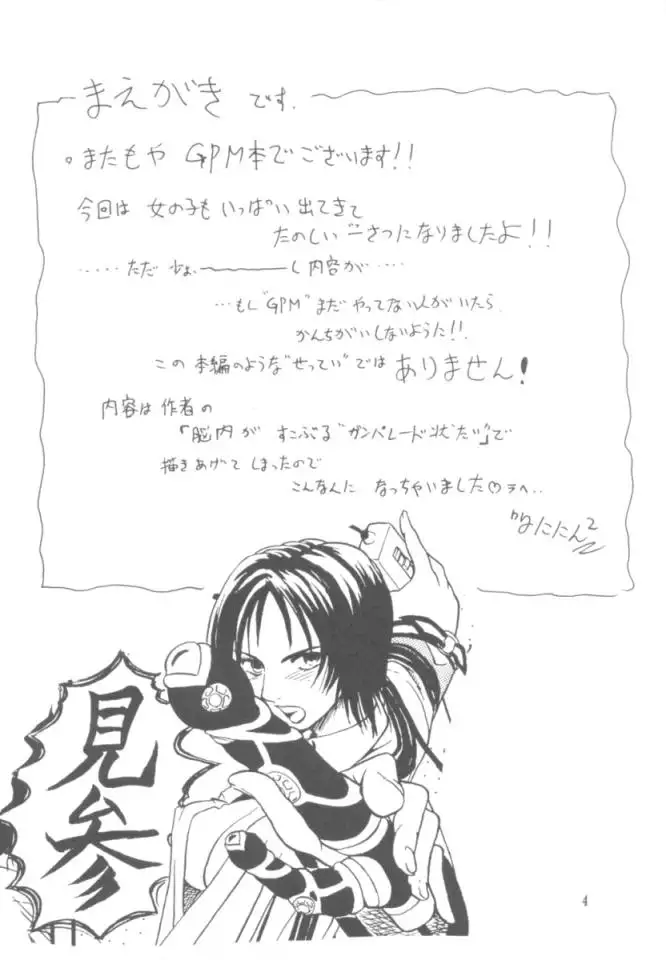 まえがきです.
。またもや GPM本でございます!!
今回は 女の子も いっぱい 出てきて
たのしい 一さつになりましたよ!!
‥‥‥ ただ 少ぉ〜し 内容が‥‥‥
…もし"GPM"まだ やってない人がいたら、
かんちがいしないように!!
この 本編のような"せってい"では ありません!
内容は 作者の
「脳内が すこぶる"ガンパレード状たい"」で
描きあげて しまったので
こんなんに なっちゃいました♡ラヘ‥
なににん2
見参
4